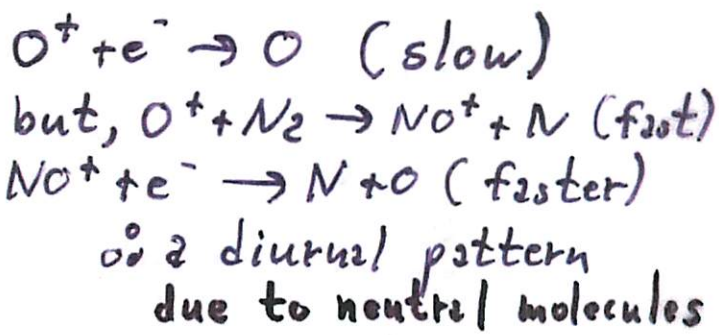 O⁺ + e⁻ → O (slow)
but, O⁺ + N₂ → NO⁺ + N (fast)
NO⁺ + e⁻ → N + O (faster)
∴ a diurnal pattern
due to neutral molecules